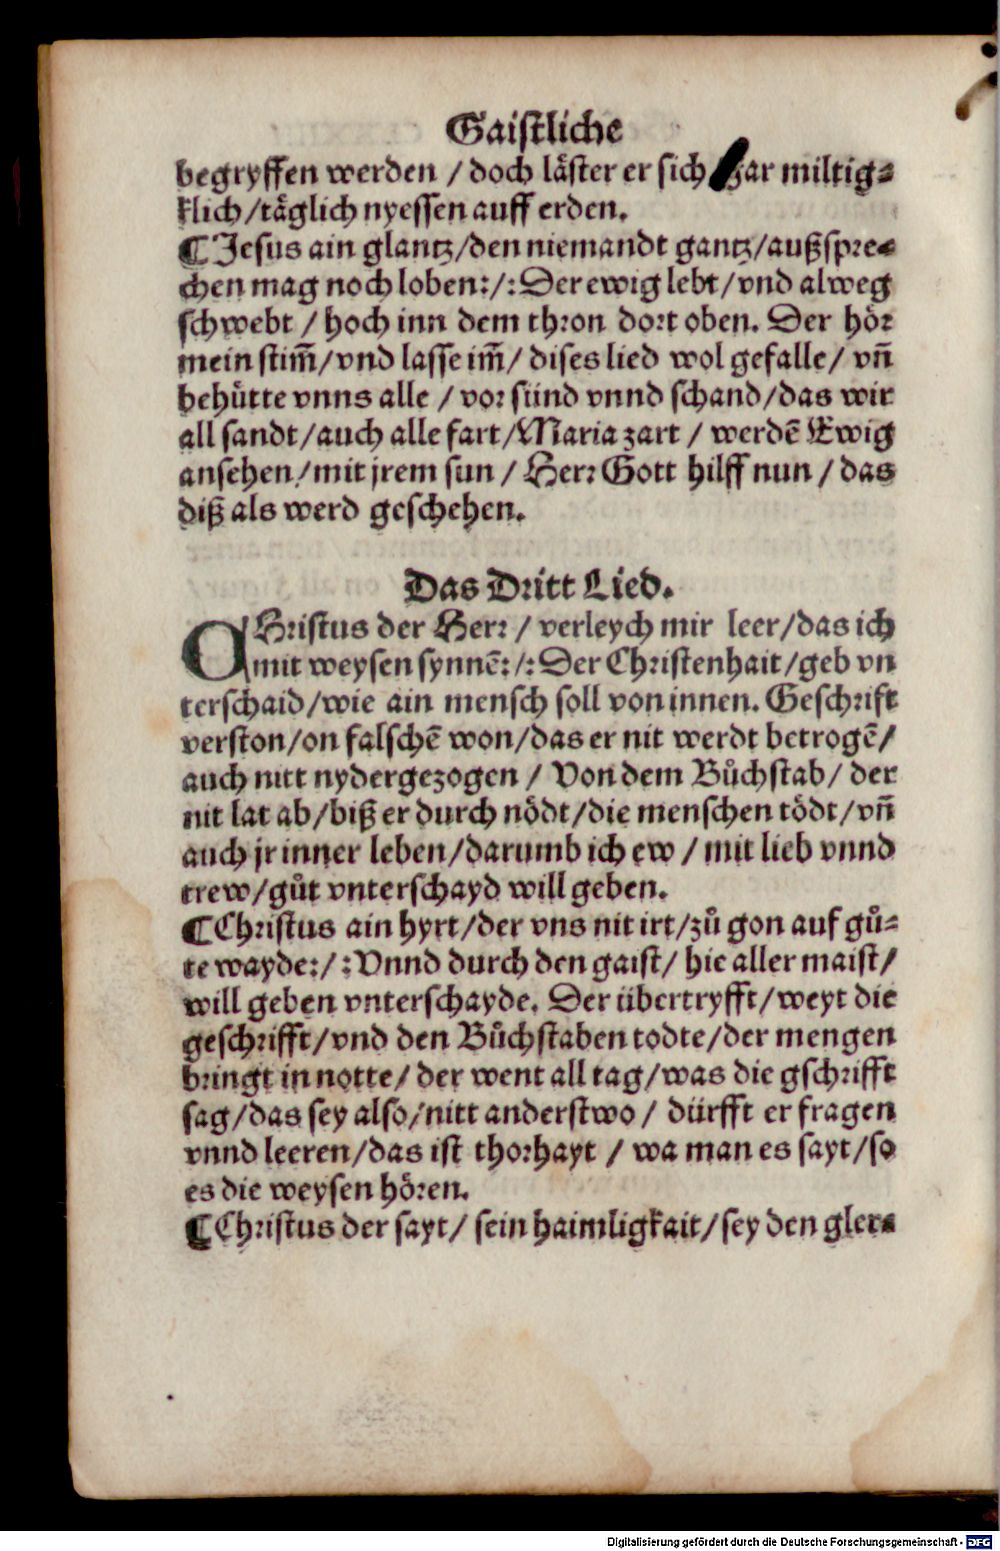 Gaistliche
begryffen werden / doch läster er sich gar miltig⸗
klich/täglich nyessen auff erden.
¶Jesus ain glantz/den niemandt gantz/außspre⸗
chen mag noch loben:/:Der ewig lebt/vnd alweg
schwebt / hoch inn dem thron dort oben. Der hör
mein stim̃/vnd lasse im̃/ dises lied wol gefalle/ vñ
behütte vnns alle / vor sünd vnnd schand/das wir
all sandt/auch alle fart/Maria zart / werdẽ Ewig
ansehen/mit jrem sun / Herr Gott hilff nun / das
diß als werd geschehen.
Das Dritt Lied.
CHristus der Herr / verleych mir leer/das ich
mit weysen synnẽ:/:Der Christenhait/geb vn
terschaid/wie ain mensch soll von innen. Geschrift
verston/on falschẽ won/das er nit werdt betrogẽ/
auch nitt nydergezogen / Von dem Bůchstab/ der
nit lat ab/biß er durch nödt/die menschen tödt/vñ
auch jr inner leben/darumb ich ew / mit lieb vnnd
trew/gůt vnterschayd will geben.
¶Christus ain hyrt/der vns nit irt/zů gon auf gů⸗
te wayde:/:Vnnd durch den gaist/ hie aller maist/
will geben vnterschayde. Der übertryfft/weyt die
geschrifft/vnd den Bůchstaben todte/der mengen
bringt in notte/ der went all tag/was die gschrifft
sag/das sey also/nitt anderstwo / dürfft er fragen
vnnd leeren/das ist thorhayt / wa man es sayt/so
es die weysen hören.
¶Christus der sayt/ sein haimligkait/sey den gler⸗
Digitalisierung gefördert durch die Deutsche Forschungsgemeinschaft - DFG